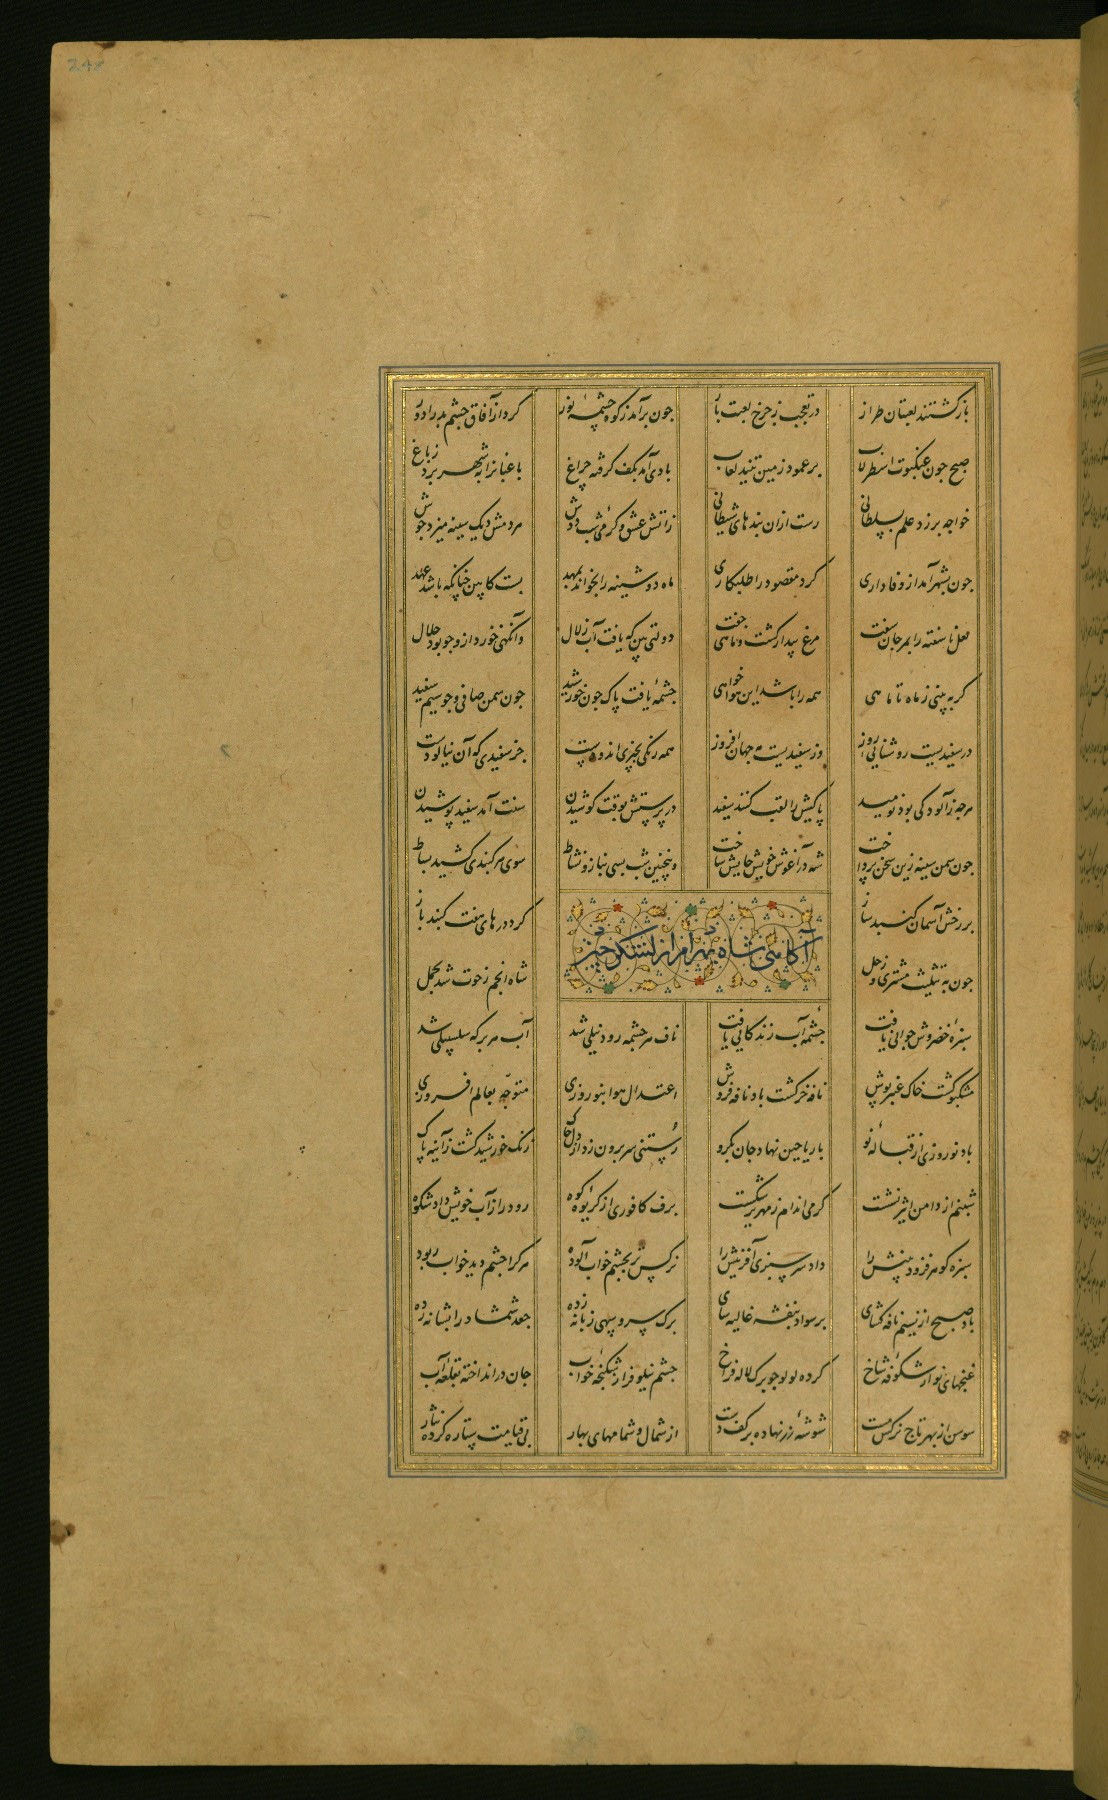 248
بازگشتند لعبتان طراز در تعجب ز چرخ لعبت باز چون برآمد ز کوه چشمه نور کرد از آفاق چشم بد را دور
صبح چون عنکبوت اسطرلاب بر عمود زمین تنید لعاب بادی آمد بکف گرفته چراغ باغبانرا به شهر برد ز باغ
خواجه برزد علم بسلطانی رست ازان بندهای شیطانی ز آتش عشق و گرمی شب دوش مرد مش دیک سینه میزد جوش
چون بشهر آمد از وفاداری کرد مقصود را طلبکاری ماه دوشینه را بخواند بمهد بست کابین چنانکه باشد عهد
لعل ناسفته را بمرجان سفت مرغ بیدار گشت و ماهی خفت دولتی بین که یافت آب زلال وانگهی خورد از وجو بود حلال
گر به بینی ز ماه تا ماهی همه را باشد این هواخواهی چشمه یافت پاک چون خورشید چون سمن صافی و چو سیم سفید
در سفیدیست روشنایی روز وز سفیدیست مه جهان افروز همه رنگی بچیزی اندودست جز سفیدی که آن نیالودست
هرچه ز آلودگی بود نومید پاکیش را لقب کنند سفید در پرستش بوقت کوشیدن سنت آمد سفید پوشیدن
چون سمن سینه زین سخن پرداخت شه در آغوش خویش جایش ساخت وینچنین شب بسی بناز و نشاط سوی هر گنبدی کشید بساط
بر رخش آسمان گنبد ساز کرد درهای هفت گنبد باز
آگاهی شاه بهرام از لشکر چین
چون به تثلیث مشتری و زحل شاه انجم ز حوت شد بحمل
سبزه خضروش جوانی یافت چشمه آب زندگانی یافت ناف هر چشمه رود نیلی شد آب هر برکه سلسبیلی شد
مشکبو گشت خاک عنبر پوش نافه خر گشت باد نافه فروش اعتدال هوا بنوروزی متوجه بعالم افروزی
باد نوروزی از قباله نو با ریاحین نهاد جان بگرو رستنی سر برون زد از دل خاک زنگ خورشید گشت ز آینه پاک
شبنم از دامن اثیر نشست گرمی اندام زمهریر شکست برف کافوری از گریوه کوه رود را ز آب خویش داد شکوه
سبزه گوهر فزود بینش را داد سرسبزی آفرینش را نرگس تر بچشم خواب آلوده هر که را چشم دید خواب ربود
باد صبح از نسیم نافه گشای بر سواد بنفشه غالیه سای برک سرو سهی زبانه زده جعد شمشاد را بشانه زده
غنچهای نو از شکوفه شاخ کرده لولو چو برک لاله فراخ چشم نیلوفر از شکنجه خواب جان در انداخته بقلعه آب
سوسن از بهر تاج نرگس مست شوشه زر نهاده بر کف دست از شمال و شمامهای بهار بی قیامت ستاره کرده نثار